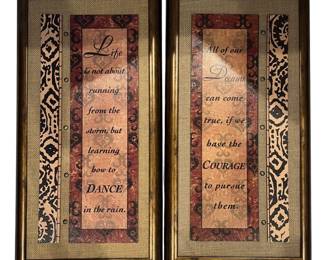 Life
is not about
running
from the
storm, but
learning
how to
DANCE
in the rain.
All of our
Dreams
can come
true, if we
have the
COURAGE
to pursue
them.